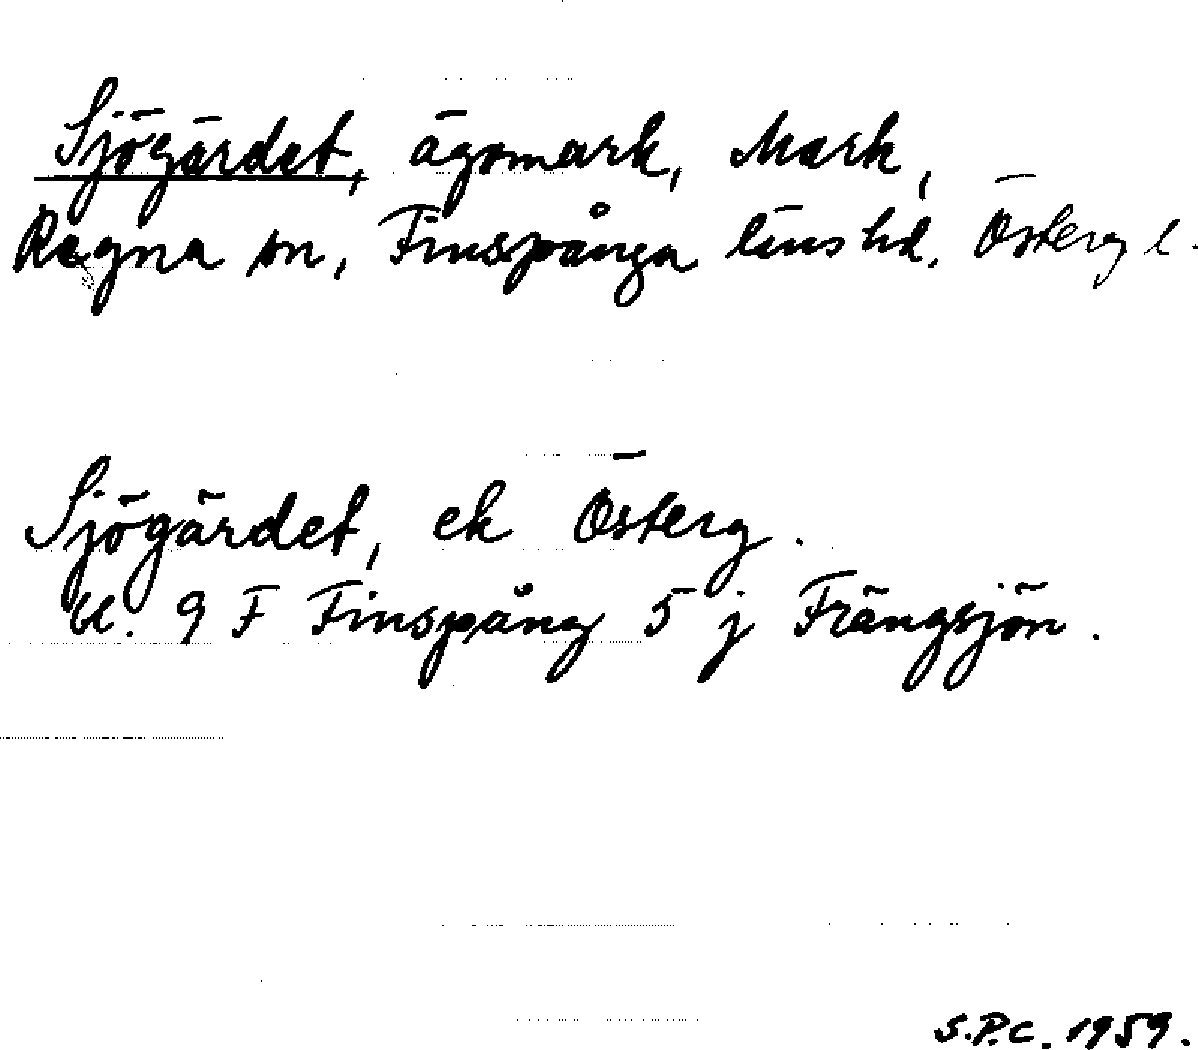 Sjögärdet, ägomark, Mark,
Regna sn, Finspånga läns hd. Österg l.
Sjögärdet, ek Österg.
bl. 9 F Finspång 5 j Frängsjön.
S.P.C. 1959.